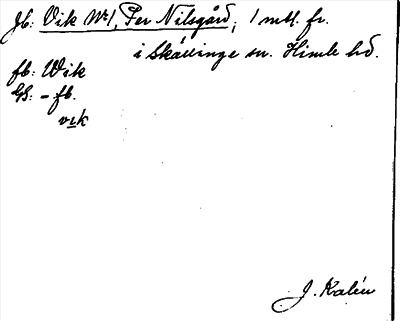 Jb: Vik Nr 1, Per Nilsgård, 1 mtl. fr.
i Skällinge sn. Himle hd.
fb: Wik
GS: - fb.
vik
J. Kalén